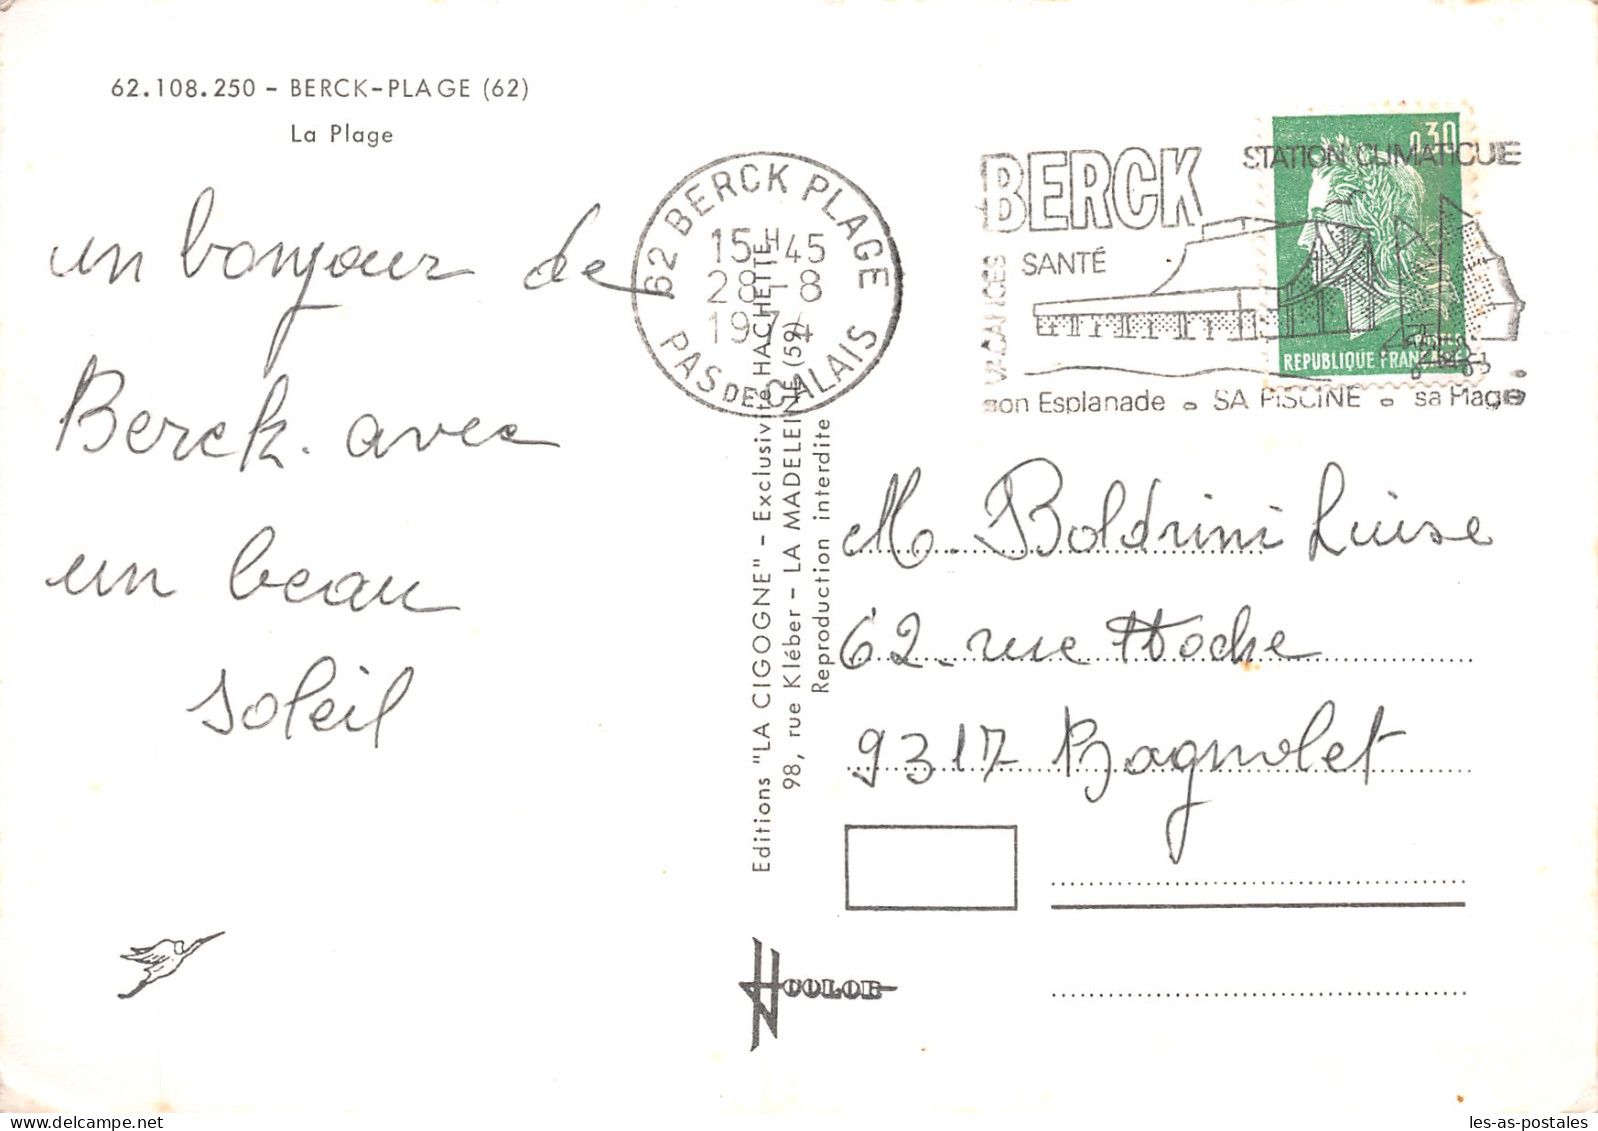 62.108.250 - BERCK-PLAGE (62)
La Plage
un bonjour de
Berck. avec
un beau
soleil
62 BERCK PLAGE
15H45
28-8
1974
PAS DE CALAIS
BERCK
STATION CLIMATIQUE
VACANCES
SANTÉ
son Esplanade . SA PISCINE . sa Plage
0,30
REPUBLIQUE FRANÇAISE
Editions "LA CIGOGNE" - Exclusivité HACHETTE
98, rue Kléber - LA MADELEINE (59)
Reproduction interdite
M. Boldrini Luise
62. rue Hoche
9317 Bagnolet
COLOR
les-as-postales